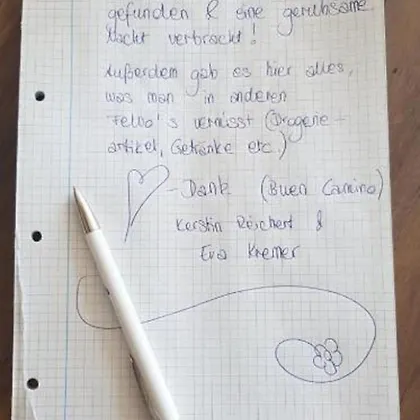 gefunden & eine geruhsame
Nacht verbracht!
Außerdem gab es hier alles,
was man in anderen
FeWo's vermisst (Drogerie-
artikel, Getränke etc.)
- Dank (Buen Camino)
Kerstin Reichert &
Eva Kremer